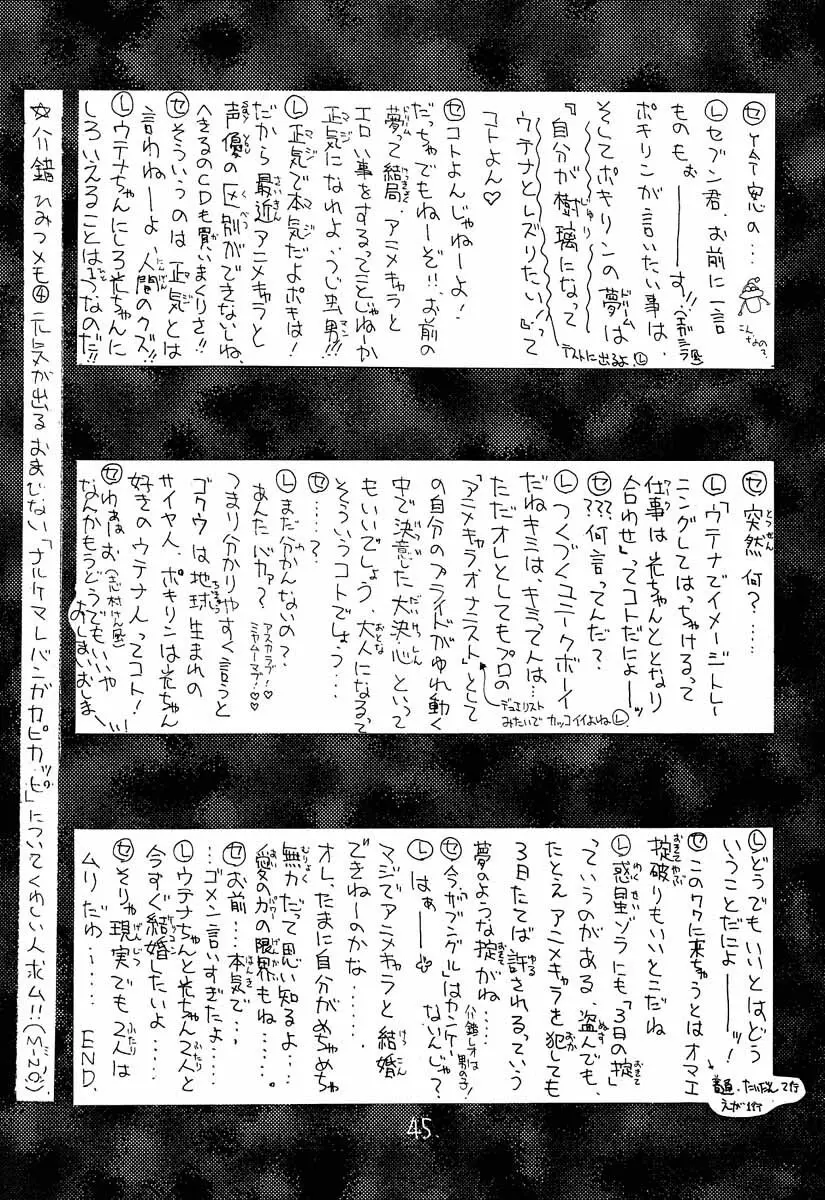 セ 今窓の…
こんなの?
レ セブン君、お前に一言
ものもぉーーーす!!
ポキリンが言いたい事は、
そしてポキリンの夢は
『自分が樹璃になって
ウテナとレズりたい!』って
テストに出るよ。レ
コトよん♡
セ コトよんじゃねーよ!
だっちゃでもねーぞ!!お前の
夢って結局、アニメキャラと
エロい事をするってことじゃねーか
正気になれよ、うじ虫男!!!
レ 正気で本気だよポキは!
だから最近アニメキャラと
声優の区別ができないしね、
へきるのCDも買いまくりさ!!
セ そういうのは正気とは
言わねーよ、人間のクズ!!
レ ウテナちゃんにしろ光ちゃんに
しろいえることは1つなのだ!!
セ 突然何?……
レ 「ウテナでイメージトレー
ニングしてはっちゃけるって
仕事は光ちゃんととなり
合わせ」ってコトだにょーーッ
セ ???何言ってんだ?
レ つくづくユニークボーイ
だねキミは、キミって人は…
ただオレとしてもプロの
「アニメキャラオナニスト」として
デュエリスト
みたいでカッコイイよね レ
の自分のプライドがゆれ動く
中で決意した大決心といって
もいいでしょう、大人になるって
そういうコトでしょう…
セ ……?
レ まだ分かんないの?
あんたバカァ?
アスカラブ!♡
ミヤムーラブ!♡♡
つまり分かりやすく言うと
ゴクウは地球生まれの
サイヤ人、ポキリンは光ちゃん
好きのウテナ人ってコト!
セ わぁはぉ(志村けん風)
なんかもうどうでもいいや
おしまいおしまい!
レ どうでもいいとはどう
いうことだにょーーッ!
セ このワクに来ちゃうとはオマエ
普通、たいだん2行
えが1行
掟破りもいいとこだね
レ 惑星ゾラにも「3日の掟」
っていうのがある、盗んでも、
たとえアニメキャラを犯しても
3日たてば許されるってい
夢のような掟がね…
セ 今、ザブングルはカンケー
ないんじゃ?
介錯レオは
男の子!
レ はぁーー
マジでアニメキャラと結婚
できねーのかな……
オレ、たまに自分がめちゃめちゃ
無力だって思い知るよ……
愛の力の限界もね……。
セ お前…本気で…、
…ゴメン言いすぎたよ…
レ ウテナちゃんと光ちゃん2人と
今すぐ結婚したいよ……
セ そりゃ現実でも2人は
ムリだゅ・……  END.
☆介錯ひみつメモ④ 元気が出るおまじない「ナルケマレバンガカピカッピ」についてくわしい人求ム!!(M-No)
45.